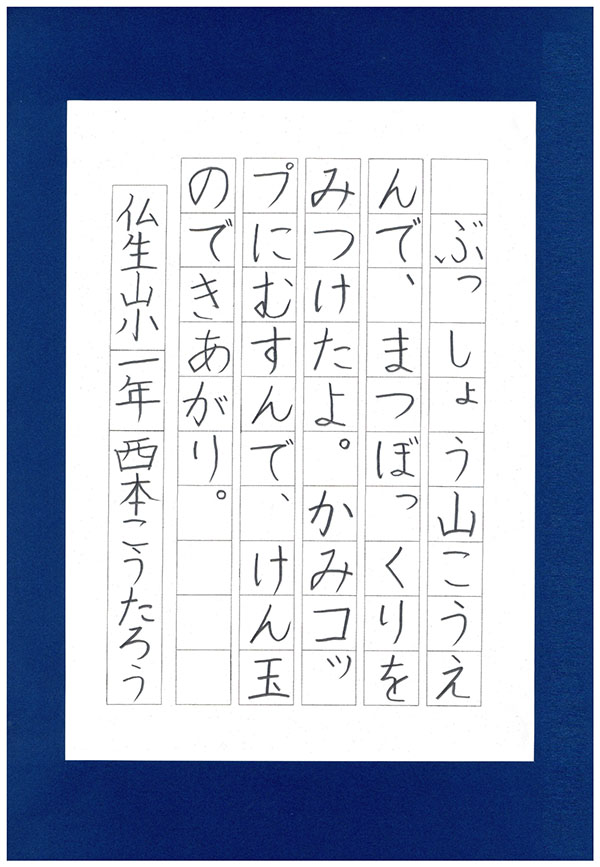 ぶっしょう山こうえ
んで、まつぼっくりを
みつけたよ。かみコッ
プにむすんで、けん玉
のできあがり。
仏生山小一年西本こうたろう